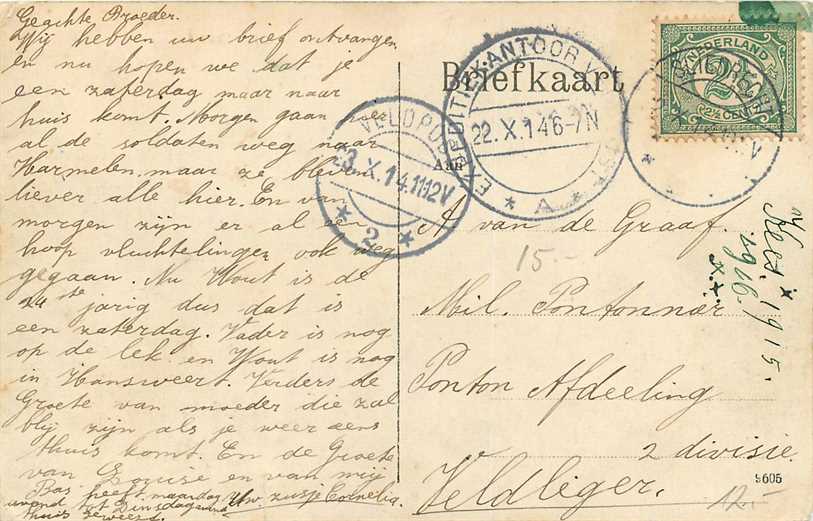 Geachte Broeder.
Wij hebben uw brief ontvangen
en nu hopen we dat je
een zaterdag maar naar
huis komt. Morgen gaan hier
al de soldaten weg naar
Harmelen, maar ze bleven
liever alle hier. En van
morgen zijn er al een
hoop vluchtelingen ook weg
gegaan. Nu Wout is de
24ste jarig dus dat is
een zaterdag. Vader is nog
op de lek en Wout is nog
in Hansweert. Verders de
Groete van moeder die zal
blij zijn als je weer eens
thuis komt. En de Groete
van Louise en van mij
Uw zusje Cornelia.
Bas heeft maandag
avond tot Dinsdagavond
thuis geweest.
Briefkaart
Aan
A. van de Graaf.
Mil. Pontonnier
Ponton Afdeeling
2 divisie.
Veldleger.
NEDERLAND
2½
2½ CENT
VELDPOST
23.X.14.11-12V
2
EXPEDITIE-KANTOOR V
22.X.14 6-7N
A
15.-
Kees. 1915.
1916.
x.x.
12.-
9605